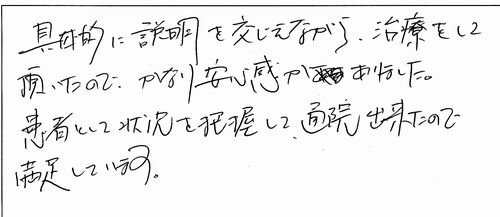 具体的に説明を交じえながら、治療をして
頂いたので、かなり安心感がありました。
患者として状況を把握して、通院出来たので
満足しています。